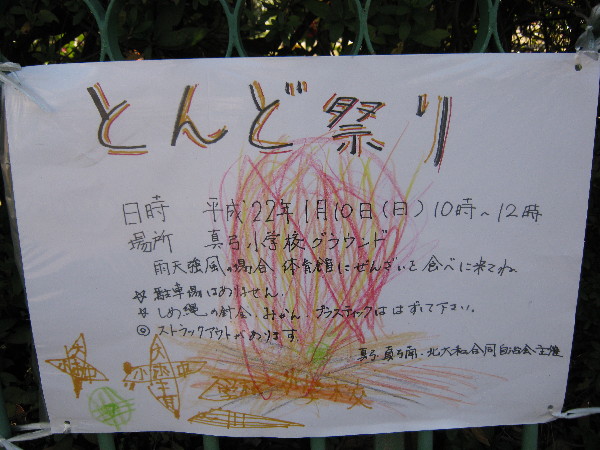 とんど祭り
日時 平成22年1月10日(日)10時～12時
場所 真弓小学校グラウンド
雨天強風の場合 体育館にぜんざいを食べに来てね
☆駐車場はありません。
☆しめ縄の針金、みかん、プラスティックははずして下さい。
◎ストラックアウトがあります
真弓、真弓南、北大和合同自治会、主催